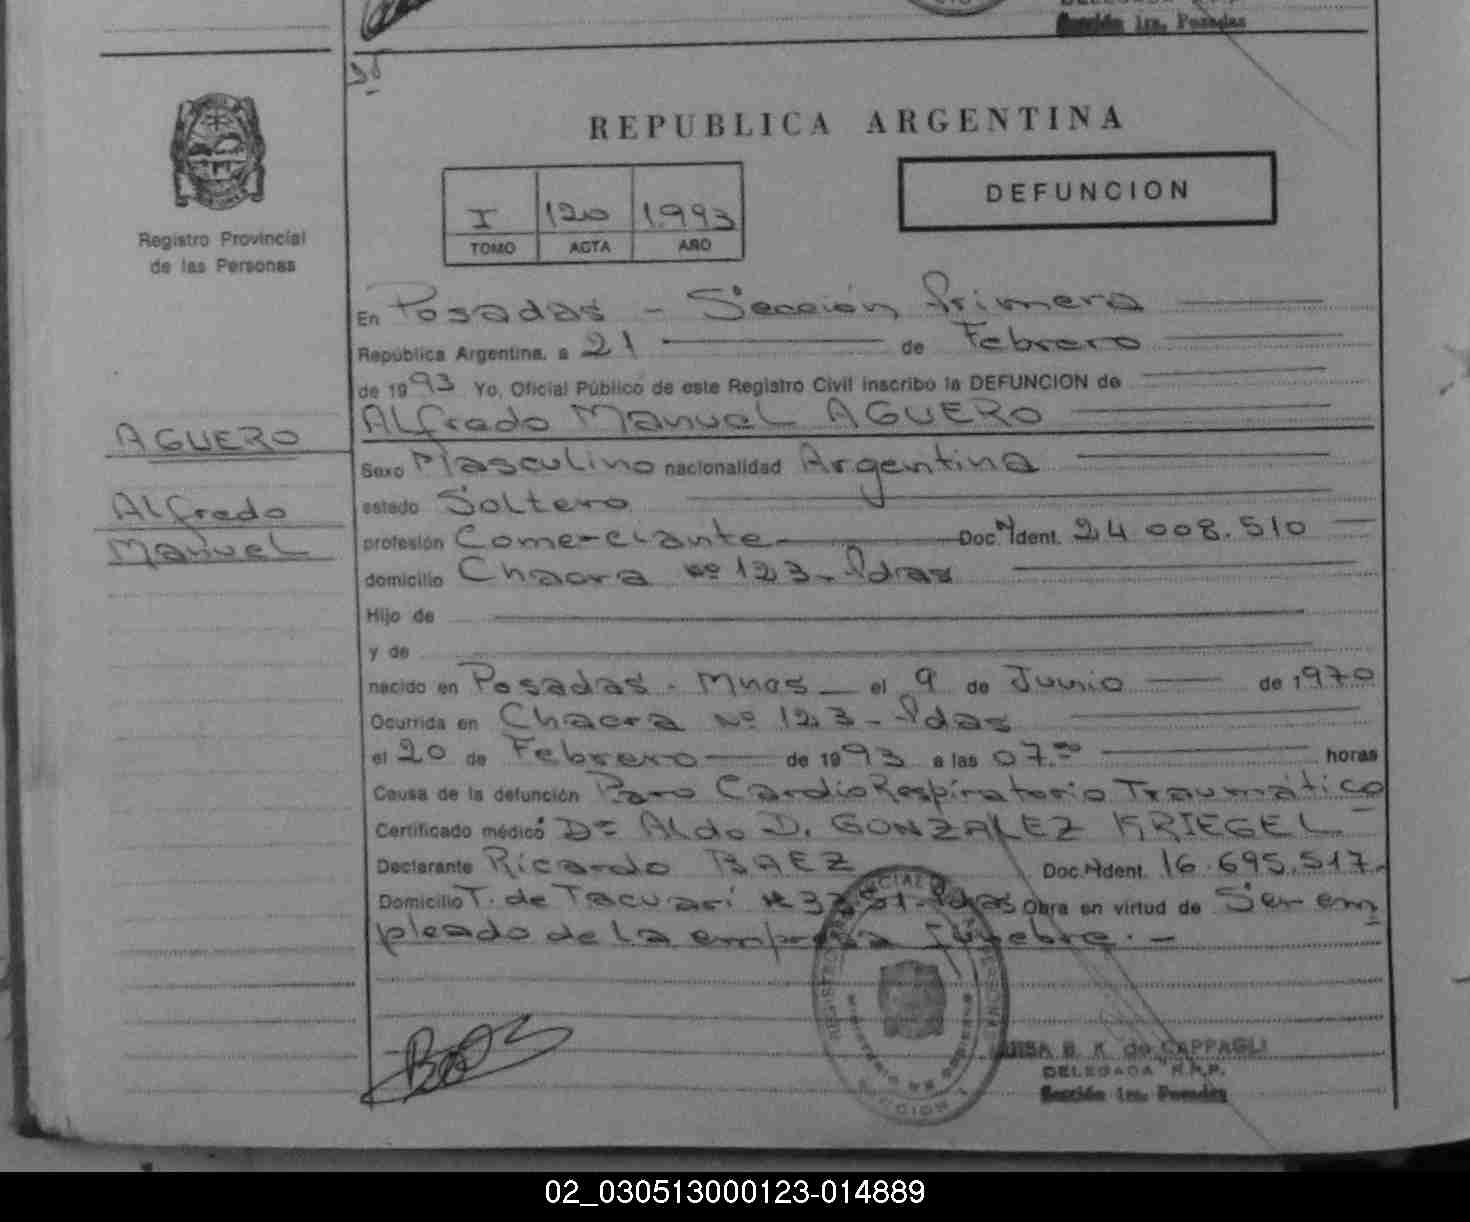 Sección 1ra. Posadas
REPUBLICA ARGENTINA
DEFUNCION
I 120 1.993
TOMO ACTA AÑO
Registro Provincial
de las Personas
En Posadas - Sección Primera
República Argentina, a 21 de Febrero
de 1993 Yo, Oficial Público de este Registro Civil inscribo la DEFUNCION de
Alfredo Manuel AGUERO
AGUERO
Alfredo
Manuel
Sexo Masculino nacionalidad Argentina
estado Soltero
profesión Comerciante Doc. Ident. 24 008.510
domicilio Chacra Nº 123 - Pdas
Hijo de
y de
nacido en Posadas - Mnes el 9 de Junio de 1970
Ocurrida en Chacra Nº 123 - Pdas
el 20 de Febrero de 1993 a las 07.00 horas
Causa de la defunción Paro CardioRespiratorio Traumático
Certificado médico Dr Aldo D. GONZALEZ KRIEGEL
Declarante Ricardo BAEZ Doc. Ident. 16.695.517.
Domicilio T. de Tacuarí Pdas Obra en virtud de Ser em
pleado de la empresa fúnebre. -
B. K. de CAPPAGLI
DELEGADA R.P.P.
Sección 1ra. Posadas
02_030513000123-014889